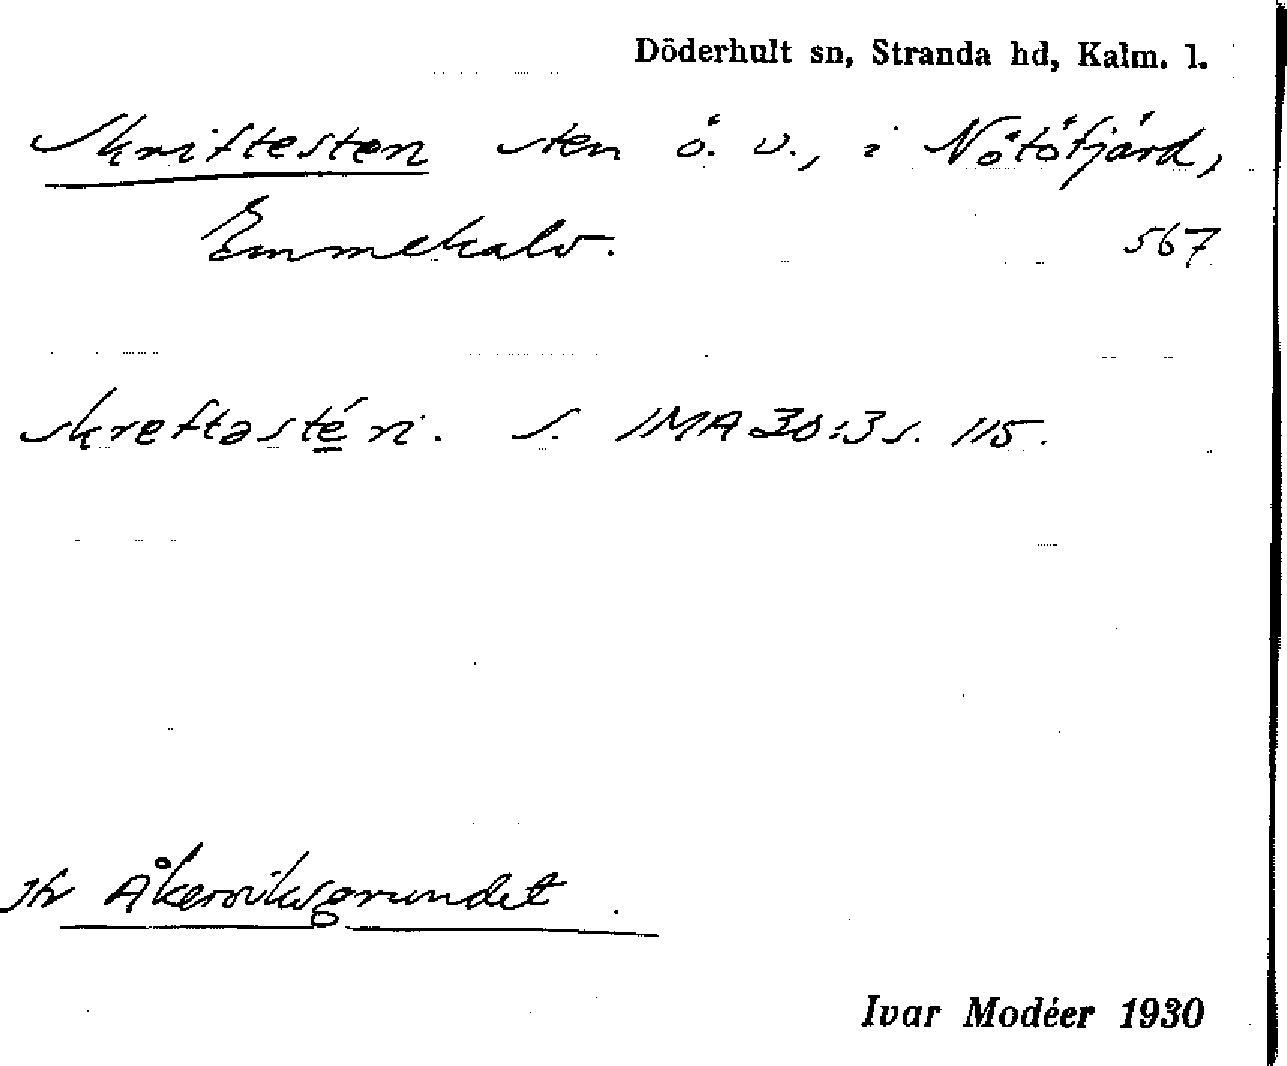 Döderhult sn, Stranda hd, Kalm. l.
Skriftesten sten ö. v., i Nötöfjärd,
Emmekalv. 567
skreftasté́n. S. SMÅ 30:3 s. 115.
Jfr Åkerviksgrundet.
Ivar Modéer 1930